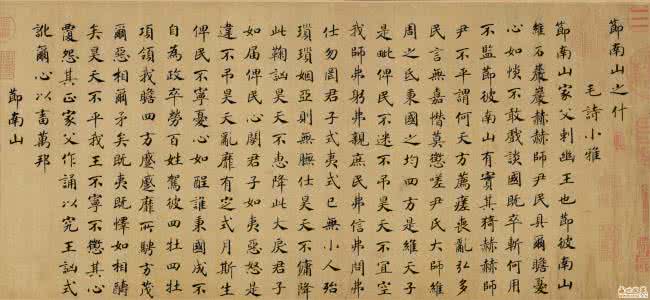 節南山之什
毛詩小雅
節南山家父刺幽王也節彼南山
維石巖巖赫赫師尹民具爾瞻憂
心如惔不敢戲談國既卒斬何用
不監節彼南山有實其猗赫赫師
尹不平謂何天方薦瘥喪亂弘多
民言無嘉憯莫懲嗟尹氏大師維
周之氐秉國之均四方是維天子
是毗俾民不迷不弔昊天不宜空
我師弗躬弗親庶民弗信弗問弗
仕勿罔君子式夷式已無小人殆
瑣瑣姻亞則無膴仕昊天不傭降
此鞠訩昊天不惠降此大戾君子
如屆俾民心闋君子如夷惡怒是
違不弔昊天亂靡有定式月斯生
俾民不寧憂心如酲誰秉國成不
自為政卒勞百姓駕彼四牡四牡
項領我瞻四方蹙蹙靡所騁方茂
爾惡相爾矛矣既夷既懌如相醻
矣昊天不平我王不寧不懲其心
覆怨其正家父作誦以究王訩式
訛爾心以畜萬邦
節南山